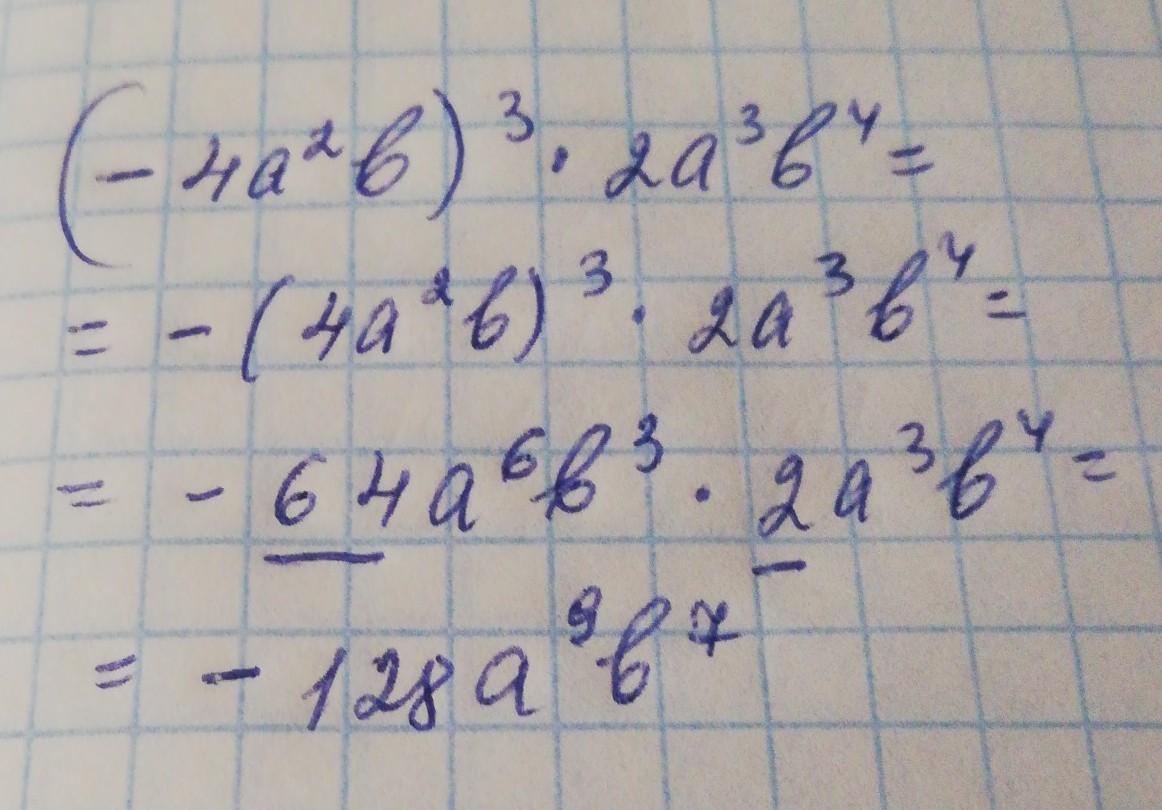 (-4a²b)³ · 2a³b⁴ =
= -(4a²b)³ · 2a³b⁴ =
= -64a⁶b³ · 2a³b⁴ =
= -128a⁹b⁷